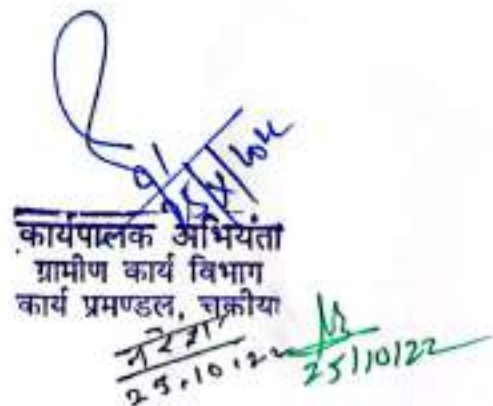 कार्यपालक अभियंता
ग्रामीण कार्य विभाग
कार्य प्रमण्डल, चकीया
नरेश
25.10.22
25/10/22